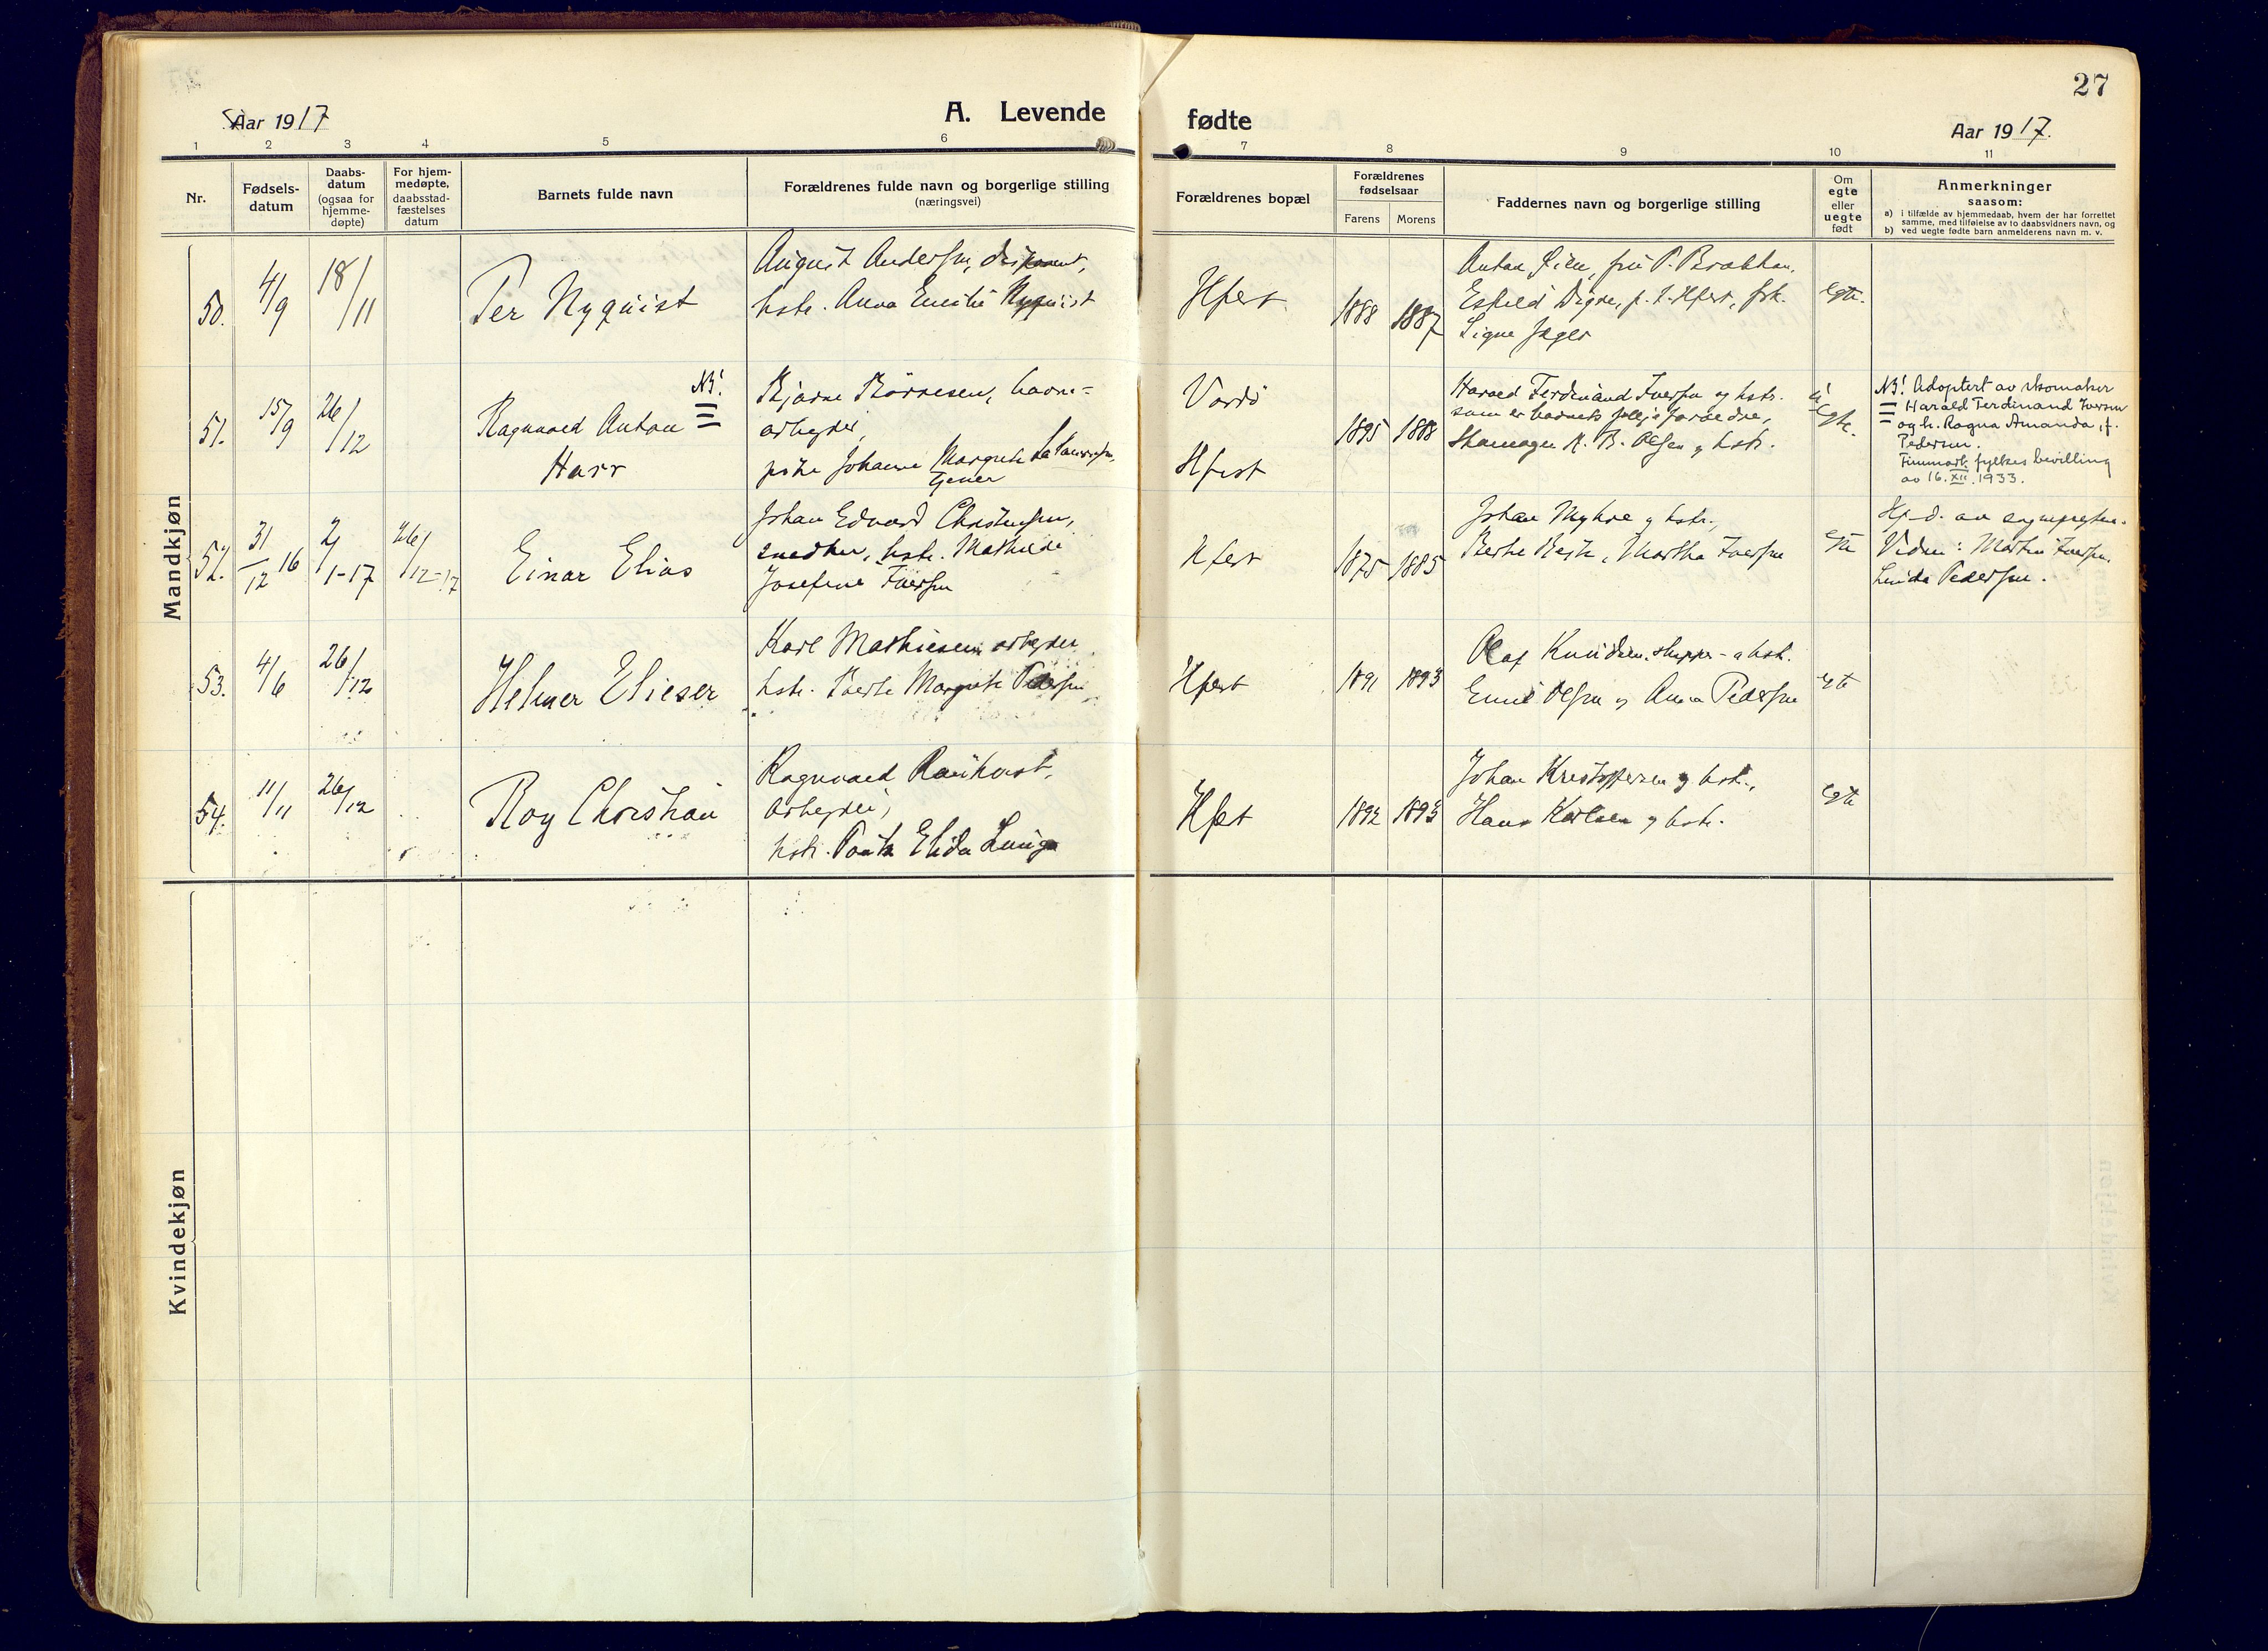 27
Aar 1917
A. Levende
fødte
Aar 1917.
1 2 3 4 5 6 7 8 9 10 11
Nr.
Fødsels-
datum
Daabs-
datum
(ogsaa for
hjemme-
døpte)
For hjem-
medøpte,
daabsstad-
fæstelses
datum
Barnets fulde navn
Forældrenes fulde navn og borgerlige stilling
(næringsvei)
Forældrenes bopæl
Forældrenes
fødselsaar
Farens Morens
Faddernes navn og borgerlige stilling
Om
egte
eller
uegte
født
Anmerkninger
saasom:
a) i tilfælde av hjemmedaab, hvem der har forrettet
samme, med tilføielse av to daabsvidners navn, og
b) ved uegte fødte barn anmelderens navn m. v.
Mandkjøn
50.
4/9
18/11
Per Nyquist
August Anderssen, disponent,
hstr. Anna Emilie Nyquist
Hfest
1888 1887
Anton Øien, fru P.
Digre, f. t. Hfest, frk.
Signe Jæger
Egte.
51.
15/9
26/12
NB!
Ragnvald Anton
Harr
Bjarne Børresen, havne-
arbeyder,
pike Johanne Margrete
Vardö
Hfest
1895 1888
Harald Ferdinand Iversen og hstr.
som er barnets pleieforældre,
Skomager K. B. Olsen og hstr.
u
Egte.
NB! Adoptert av skomaker
Harald Ferdinand Iversen
og h. Ragna Amanda, f.
Pedersen.
Finnmark fylkes bevilling
av 16. XII. 1933.
52.
31/12 16
2/1-17
26/12-17
Einar Elias
Johan Edvard Christensen,
snedker, hstr. Mathilde
Josefine Iversen
Hfest
1875 1885
Johan Myhre og hstr.,
Berthe, Martha Iversen
Egte
Hj-d. av sognepresten.
Vidner: Martha Iversen,
Linda Pedersen.
53.
4/6
26/12
Helmer Elieser
Karl Mathiesen, arbeyder
hstr. Berte Margrete Pedersen
Hfest
1891 1893
Olaf Knudsen, skipper - og hst.
Emil Olsen og Anna Pedersen
egte
54.
11/11
26/12
Roy Christian
Ragnvald
Arbeyder,
hstr. Elida
Hfest
1892 1893
Johan Kristoffersen og hstr.,
Hans Karlsen og hstr.
Egte
Kvindekjøn